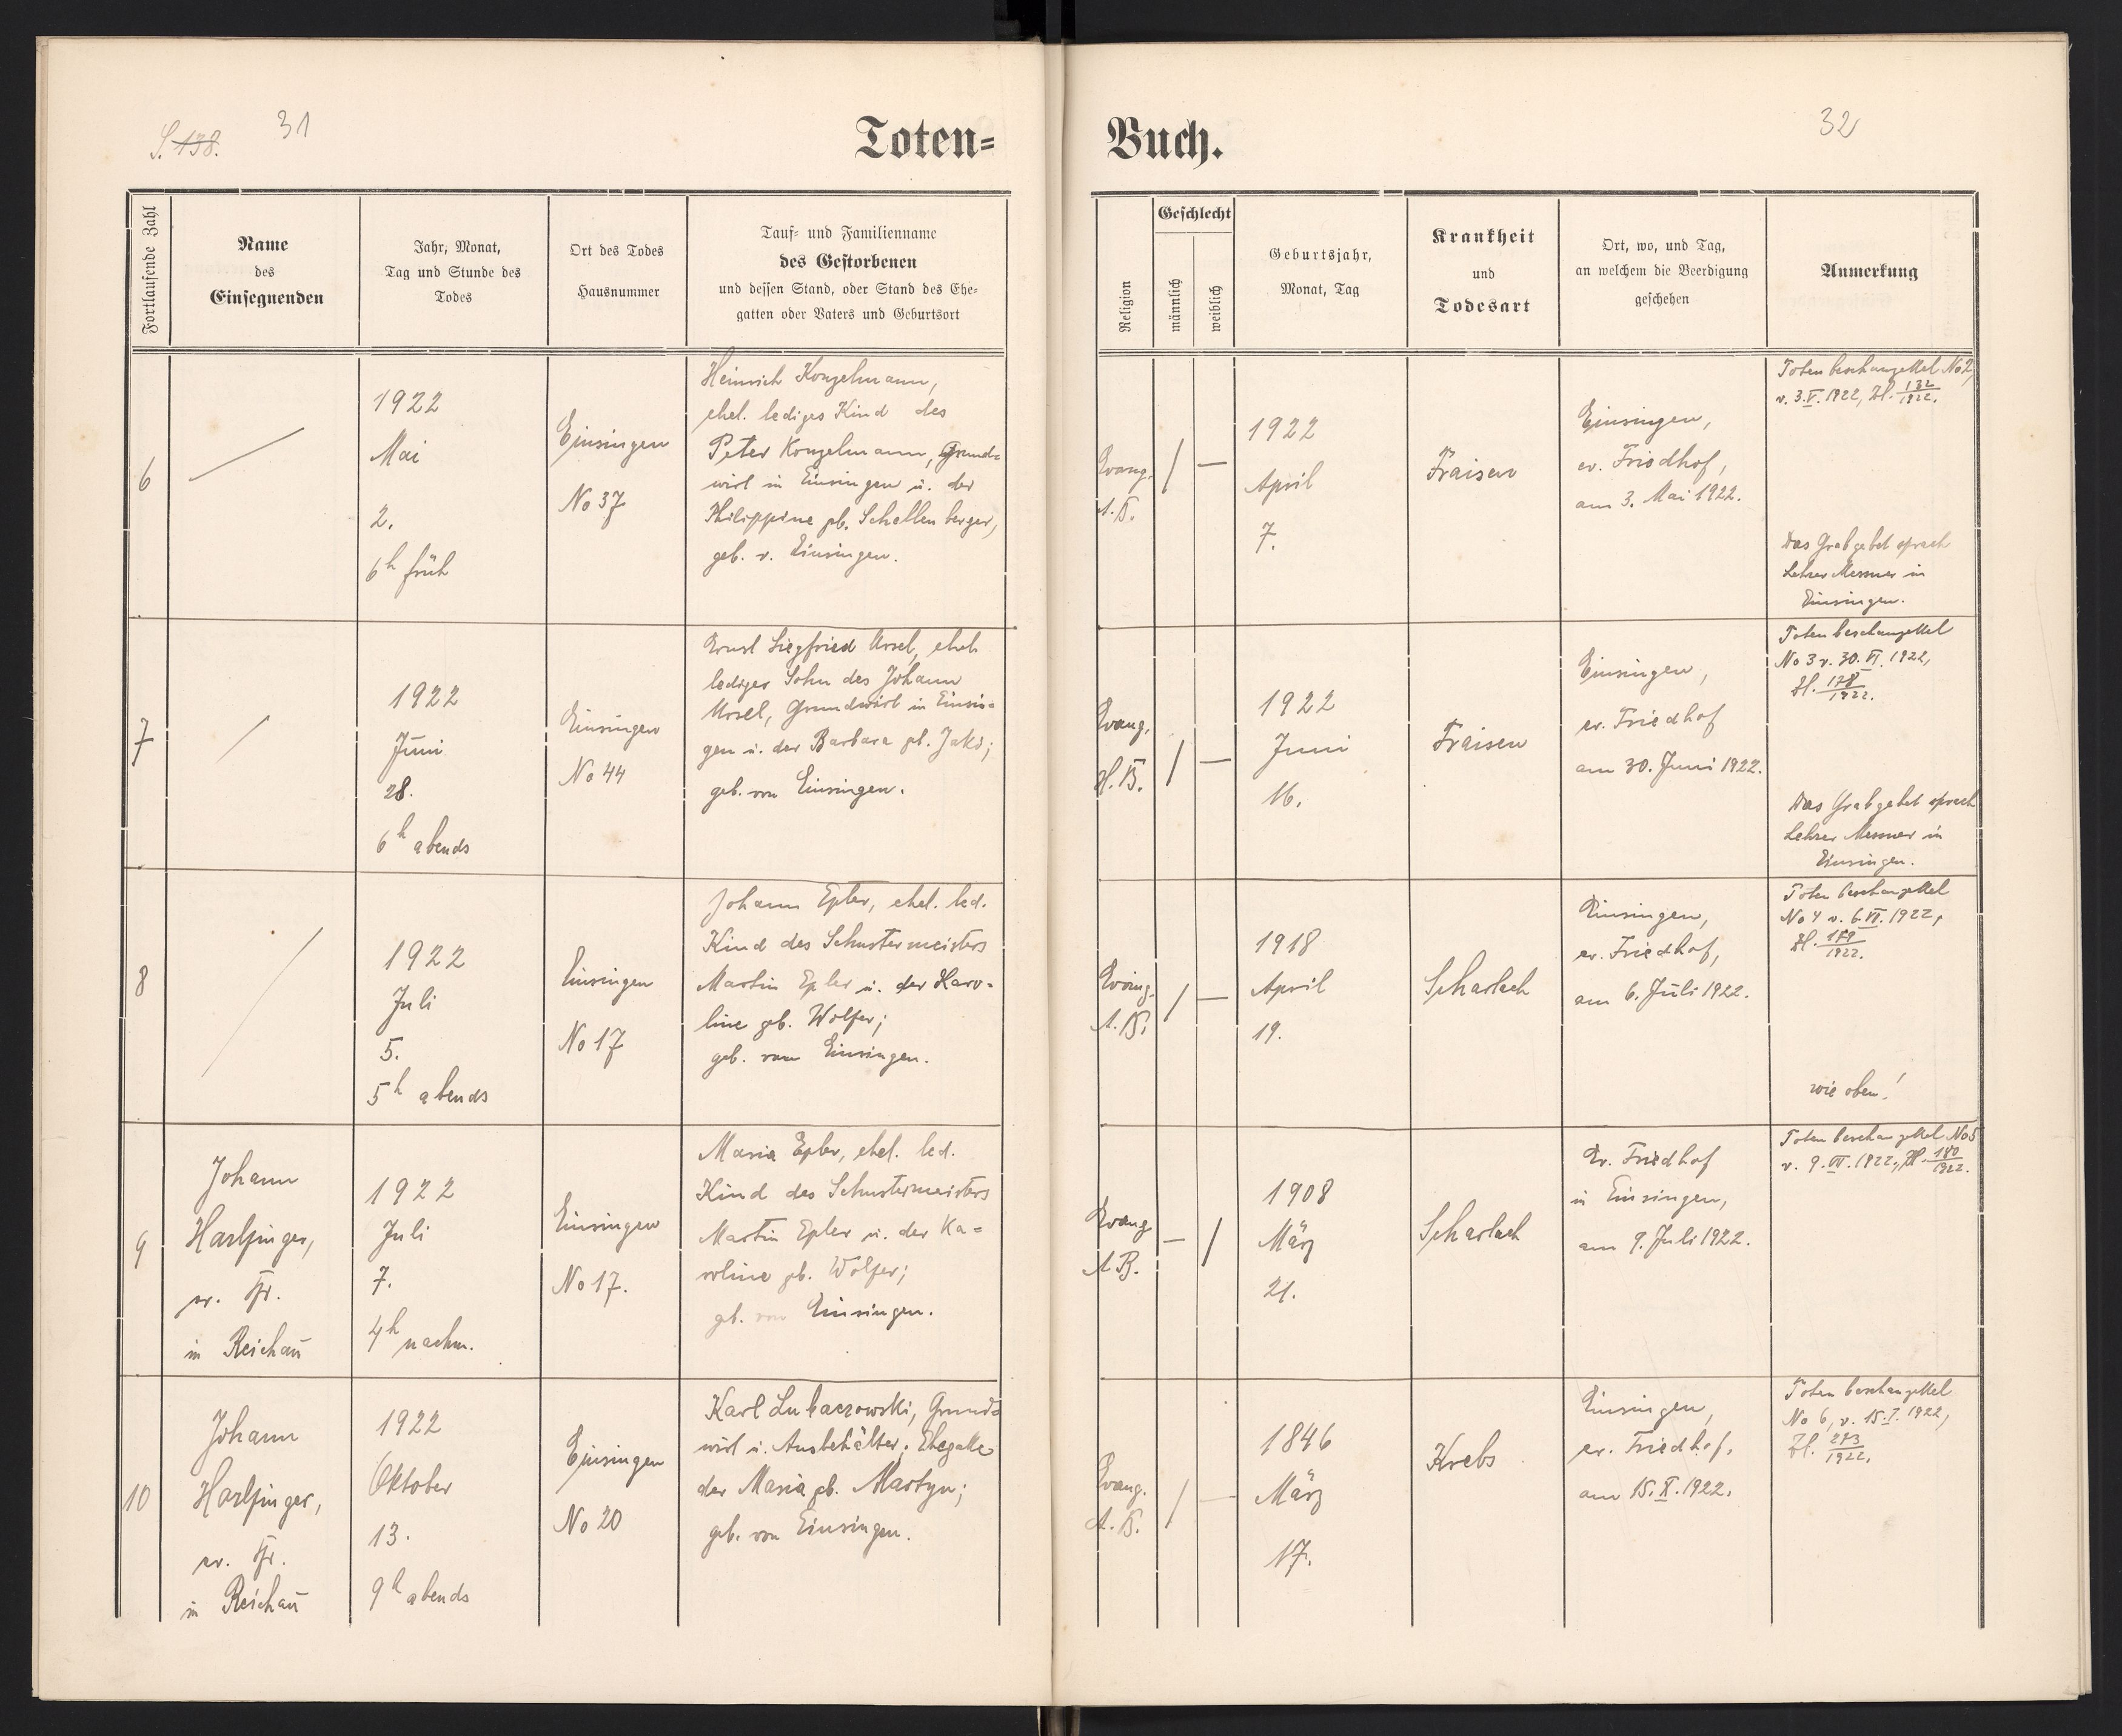 S. 138.
31
Toten-
Fortlaufende Zahl
Name
des
Einsegnenden
Jahr, Monat,
Tag und Stunde des
Todes
Ort des Todes
Hausnummer
Tauf- und Familienname
des Gestorbenen
und dessen Stand, oder Stand des Ehe-
gatten oder Vaters und Geburtsort
6
1922
Mai
2.
6h früh
Einsingen
No 37
Heinrich Konzelmann,
ehel. lediges Kind des
Peter Konzelmann, Grund-
wirt in Einsingen u. der
Philippine gb. Schellenberger,
geb. v. Einsingen.
7
1922
Juni
28.
6h abends
Einsingen
No 44
Ernst Siegfried Ursel, ehel.
lediger Sohn des Johann
Ursel, Grundwirt in Einsin-
gen u. der Barbara gb. Jaki;
geb. von Einsingen.
8
1922
Juli
5.
5h abends
Einsingen
No 17
Johann Epler, ehel. led.
Kind des Schustermeisters
Martin Epler u. der Karo-
line gb. Wolfer;
geb. von Einsingen.
9
Johann
Harlfinger,
ev. Pfr.
in Reichau
1922
Juli
7.
4h nachm.
Einsingen
No 17.
Maria Epler, ehel. led.
Kind des Schustermeisters
Martin Epler u. der Ka-
roline gb. Wolfer;
gb. von Einsingen.
10
Johann
Harlfinger,
ev. Pfr.
in Reichau
1922
Oktober
13.
9h abends
Einsingen
No 20
Karl Lubaczowski, Grund-
wirt u. Ausbehälter; Ehegatte
der Maria gb. Martyn;
geb. von Einsingen.
Buch.
32
Religion
Geschlecht
männlich
weiblich
Geburtsjahr,
Monat, Tag
Krankheit
und
Todesart
Ort, wo, und Tag,
an welchem die Beerdigung
geschehen
Anmerkung
Evang.
A. B.
/ —
1922
April
7.
Fraisen
Einsingen,
ev. Friedhof,
am 3. Mai 1922.
Totenbeschauzettel No 2,
v. 3.V. 1922, Zl. 132/1922.
Das Grabgebet sprach
Lehrer Messner in
Einsingen.
Evang.
H. B.
/ —
1922
Juni
16.
Fraisen
Einsingen,
ev. Friedhof
am 30. Juni 1922.
Totenbeschauzettel
No 3 v. 30. VI. 1922,
Zl. 178/1922.
Das Grabgebet sprach
Lehrer Messner in
Einsingen.
Evang.
A. B.
/ —
1918
April
19.
Scharlach
Einsingen,
ev. Friedhof,
am 6. Juli 1922.
Totenbeschauzettel
No 4 v. 6. VII. 1922,
Zl. 179/1922.
wie oben!
Evang
A. B.
— /
1908
März
21.
Scharlach
Ev. Friedhof
in Einsingen,
am 9. Juli 1922.
Totenbeschauzettel No 5
v. 9. VII. 1922, Zl. 180/1922.
Evang.
A. B.
/ —
1846
März
17.
Krebs
Einsingen,
ev. Friedhof,
am 15. X. 1922.
Totenbeschauzettel
No 6, v. 15. X. 1922,
Zl. 273/1922.